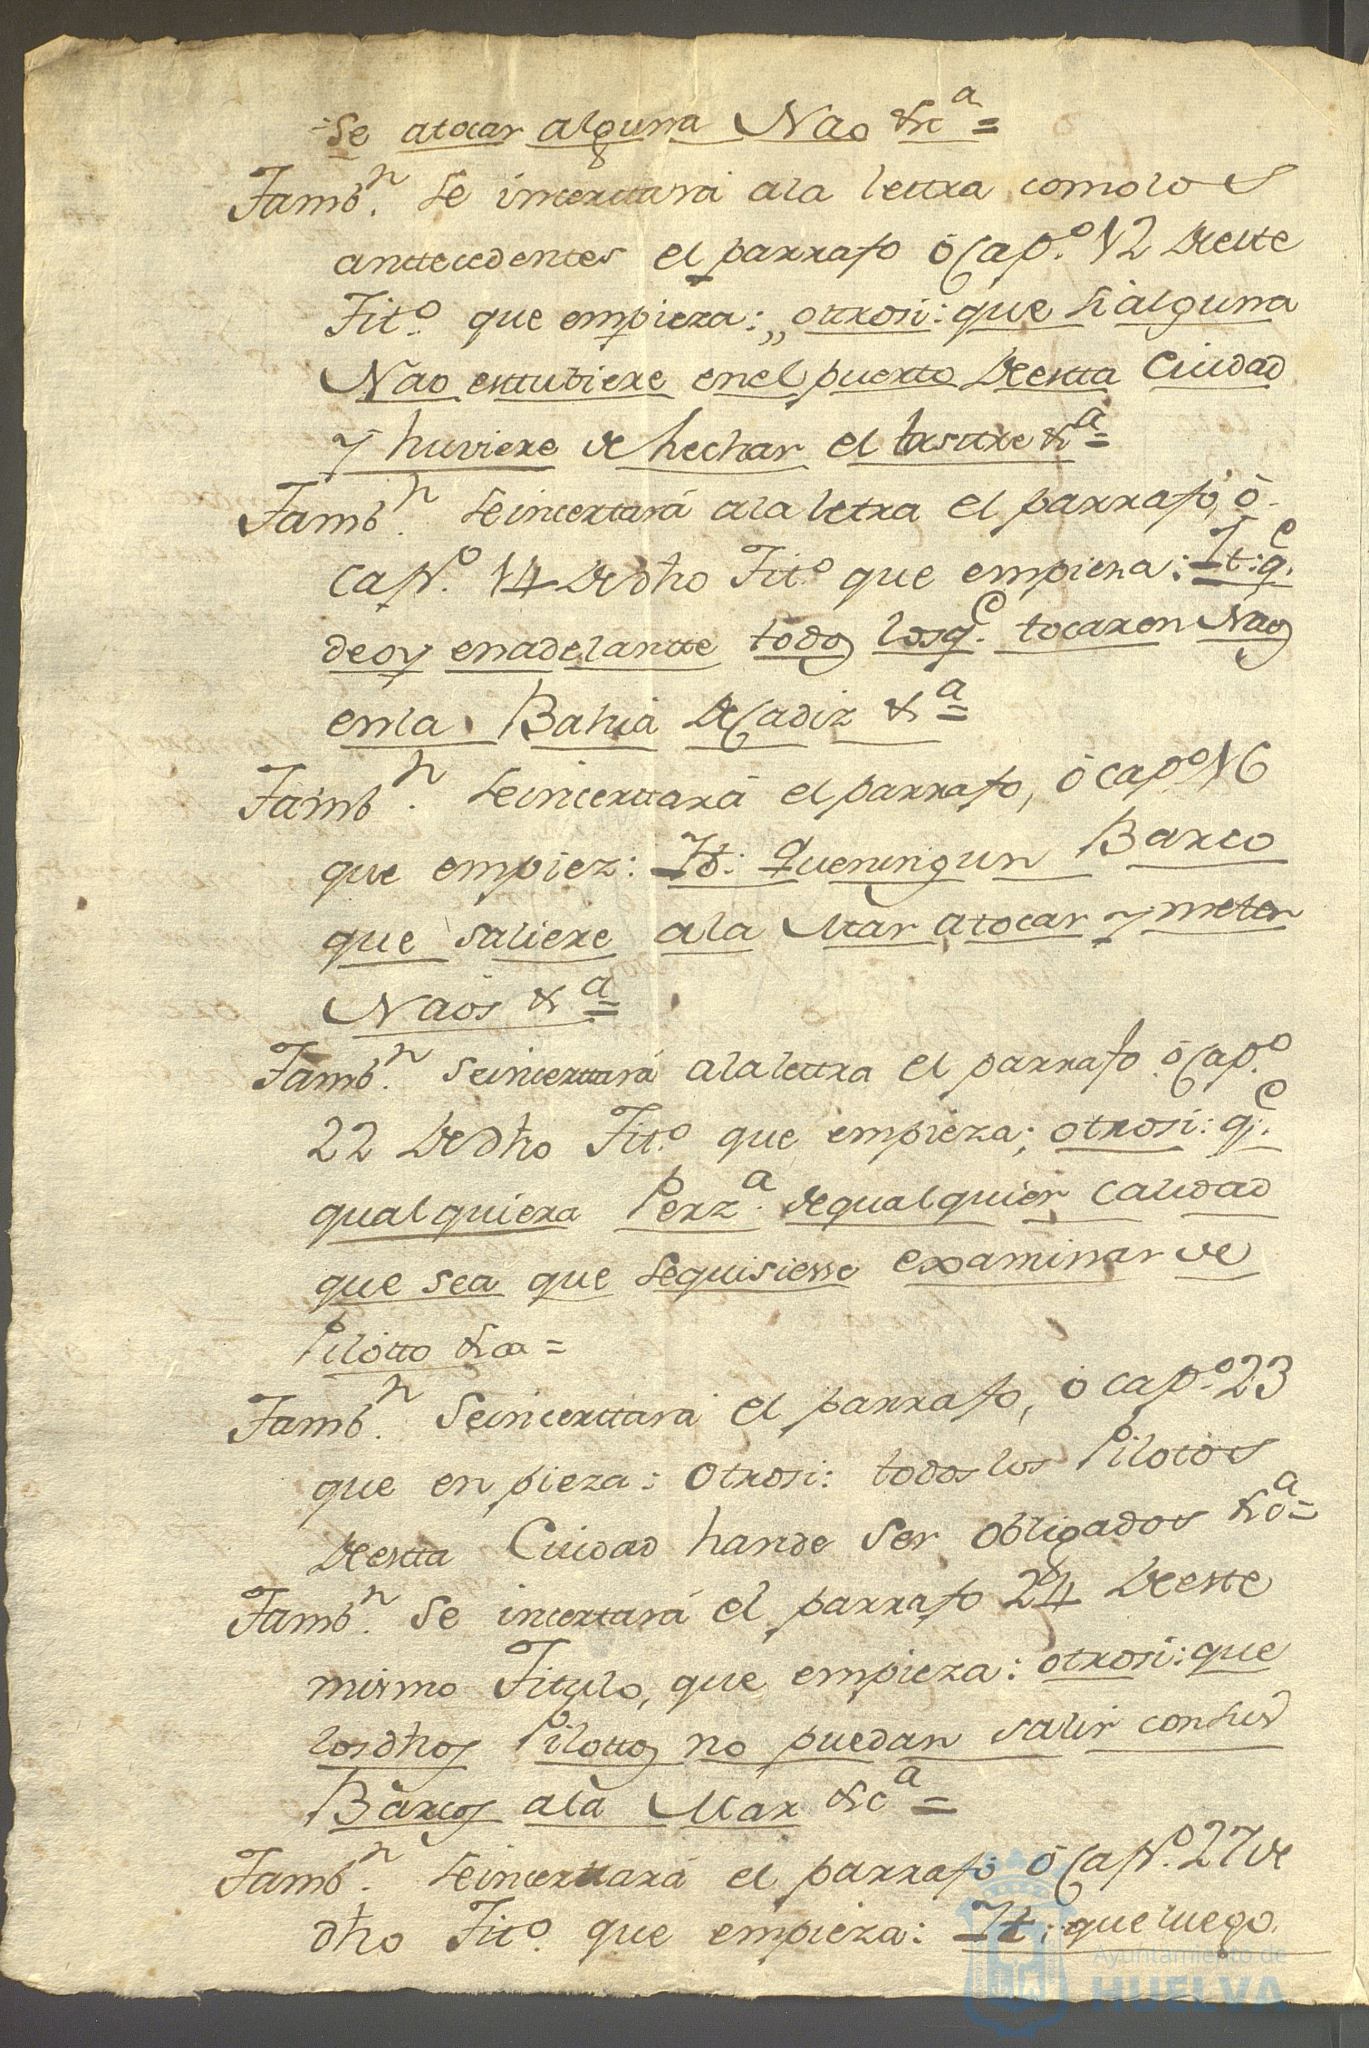 se atocar alguna Nao &cª =
Tambⁿ. se incerttará ala lettra como los
anttecedentes el parrafo ó Capº. 12 Deeste
Titº. que empieza: „ otrosi: que si alguna
Nao esttubiere enel puertto Deestta Ciudad
y huviere de hechar el lasttre &ª =
Tambⁿ. seincertará ala letra el parrafo, ó
capº. 14 De dho Titº que empieza: It: qᵉ.
deoy enadelantte todos losqᵉ. tocaren Naos
enla Bahia DeCadiz &ª =
Tambⁿ. seincerttará el parrafo, ó capº 16
que empiez: It: Queningun Barco
que saliere ala Mar atocar y meter
Naos &ª =
Tambⁿ. seincerttará alalettra el parrafo ó Capº
22 De dho Titº. que empieza; otrosi: qᵉ.
qualquiera Perzª. dequalquier calidad
que sea que sequisiesse examinar de
Pilotto &ca =
Tambⁿ. seincerttará el parrafo, ó capº. 23
que enpieza: Otrosi: todos los Pilotos
Deestta Ciudad hande ser obligados &cª =
Tambⁿ. se incertará el parrafo 24 Deeste
mismo Titulo, que empieza: otrosi: que
losdhos Pilottos no puedan salir consus
Barcos ala Mar &cª =
Tambⁿ. seincerttará el parrafo ó Capº. 27 de
dho Titº. que empieza: It: que luego
Ayuntamiento de
HUELVA